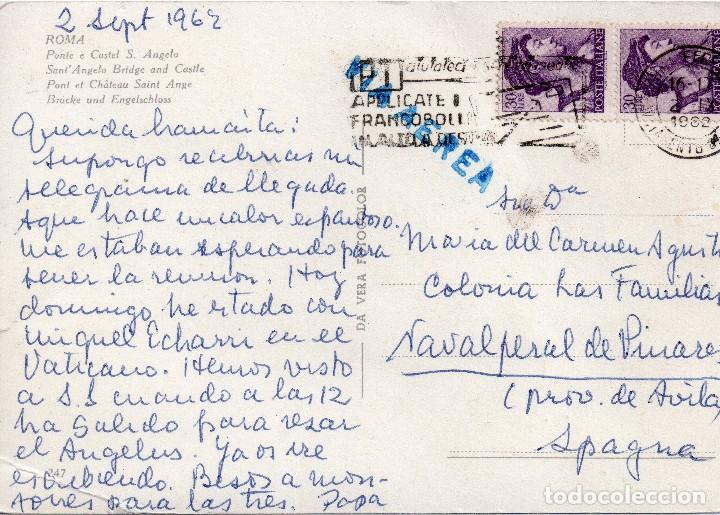 2 Sept 1962
ROMA
Ponte e Castel S. Angelo
Sant'Angelo Bridge and Castle
Pont et Château Saint Ange
Brücke und Engelschloss
Querida mamaita:
Supongo recibirias mi
telegrama de llegada
aqui hace un calor espantoso.
me estaban esperando para
tener la reunion. Hoy
domingo he estado con
Miguel Echarri en el
Vaticano. Hemos visto
a S.S cuando a las 12
ha salido para rezar
el Angelus. Ya os ire
escribiendo. Besos a mon-
tones para las tres. Papa
247
DA VERA FOTOCOLOR
PT
APPLICATE I
FRANCOBOLLI
IN ALTO A DES
VIA AEREA
30
POSTE ITALIANE
30
POSTE ITALIANE
16-17
1962
Sra Da
Maria del Carmen Agusti
Colonia Las Familias
Navalperal de Pinares
(prov. de Avila
Spagna
todocoleccion